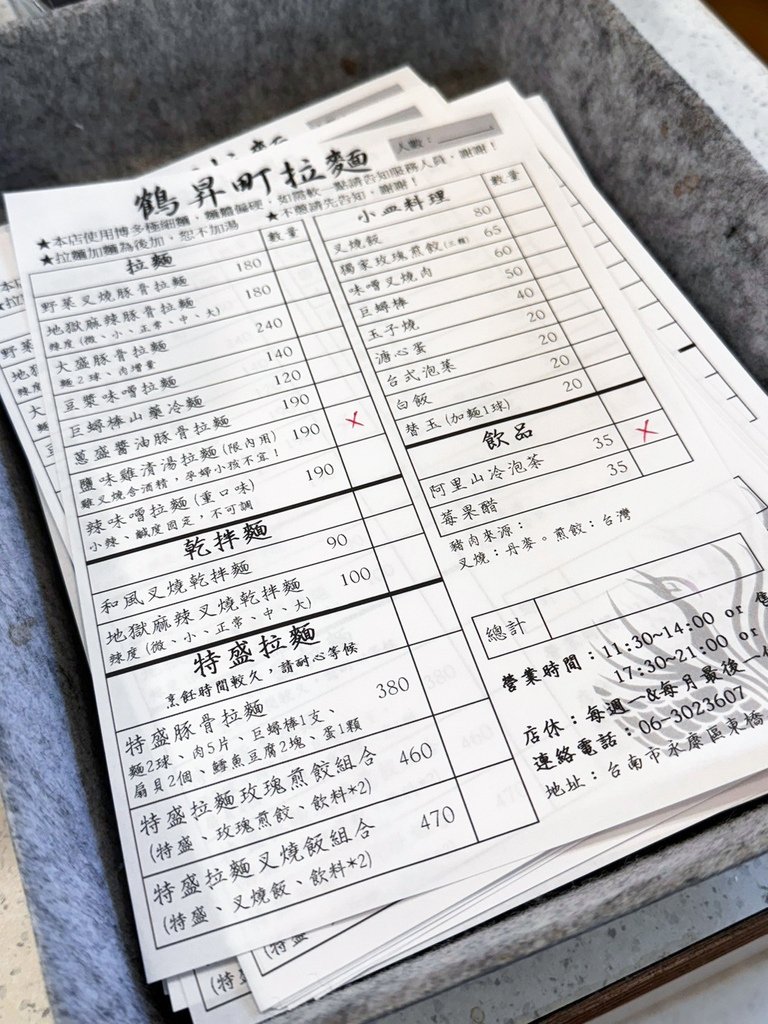 鶴昇町拉麵
人數：
★本店使用博多極細麵，麵體偏硬，如需軟一點請告知服務人員，謝謝！
★拉麵加麵為後加，恕不加湯 ★不蔥請先告知，謝謝！
拉麵 數量
野菜叉燒豚骨拉麵 180
地獄麻辣豚骨拉麵 180
辣度(微、小、正常、中、大)
大盛豚骨拉麵 240
麵2球、肉增量
豆漿味噌拉麵 140
巨蟳棒山藥冷麵 120
蔥盛醬油豚骨拉麵 190
鹽味雞清湯拉麵(限內用) 190 X
雞叉燒含酒精，孕婦小孩不宜！
辣味噌拉麵(重口味) 190
小辣、鹹度固定，不可調
乾拌麵
和風叉燒乾拌麵 90
地獄麻辣叉燒乾拌麵 100
辣度(微、小、正常、中、大)
特盛拉麵
烹飪時間較久，請耐心等候
特盛豚骨拉麵 380
麵2球、肉5片、巨蟳棒1支、
扇貝2個、鱈魚豆腐2塊、蛋1顆
特盛拉麵玫瑰煎餃組合 460
(特盛、玫瑰煎餃、飲料*2)
特盛拉麵叉燒飯組合 470
(特盛、叉燒飯、飲料*2)
小皿料理 數量
叉燒飯 80
獨家玫瑰煎餃(三顆) 65
味噌叉燒肉 60
巨蟳棒 50
玉子燒 40
溏心蛋 20
台式泡菜 20
白飯 20
替玉(加麵1球) 20
飲品
阿里山冷泡茶 35 X
莓果醋 35
豬肉來源：
叉燒：丹麥。煎餃：台灣
總計
營業時間：11:30~14:00 or 售
17:30~21:00 or
店休：每週一&每月最後一
連絡電話：06-3023607
地址：台南市永康區東橋